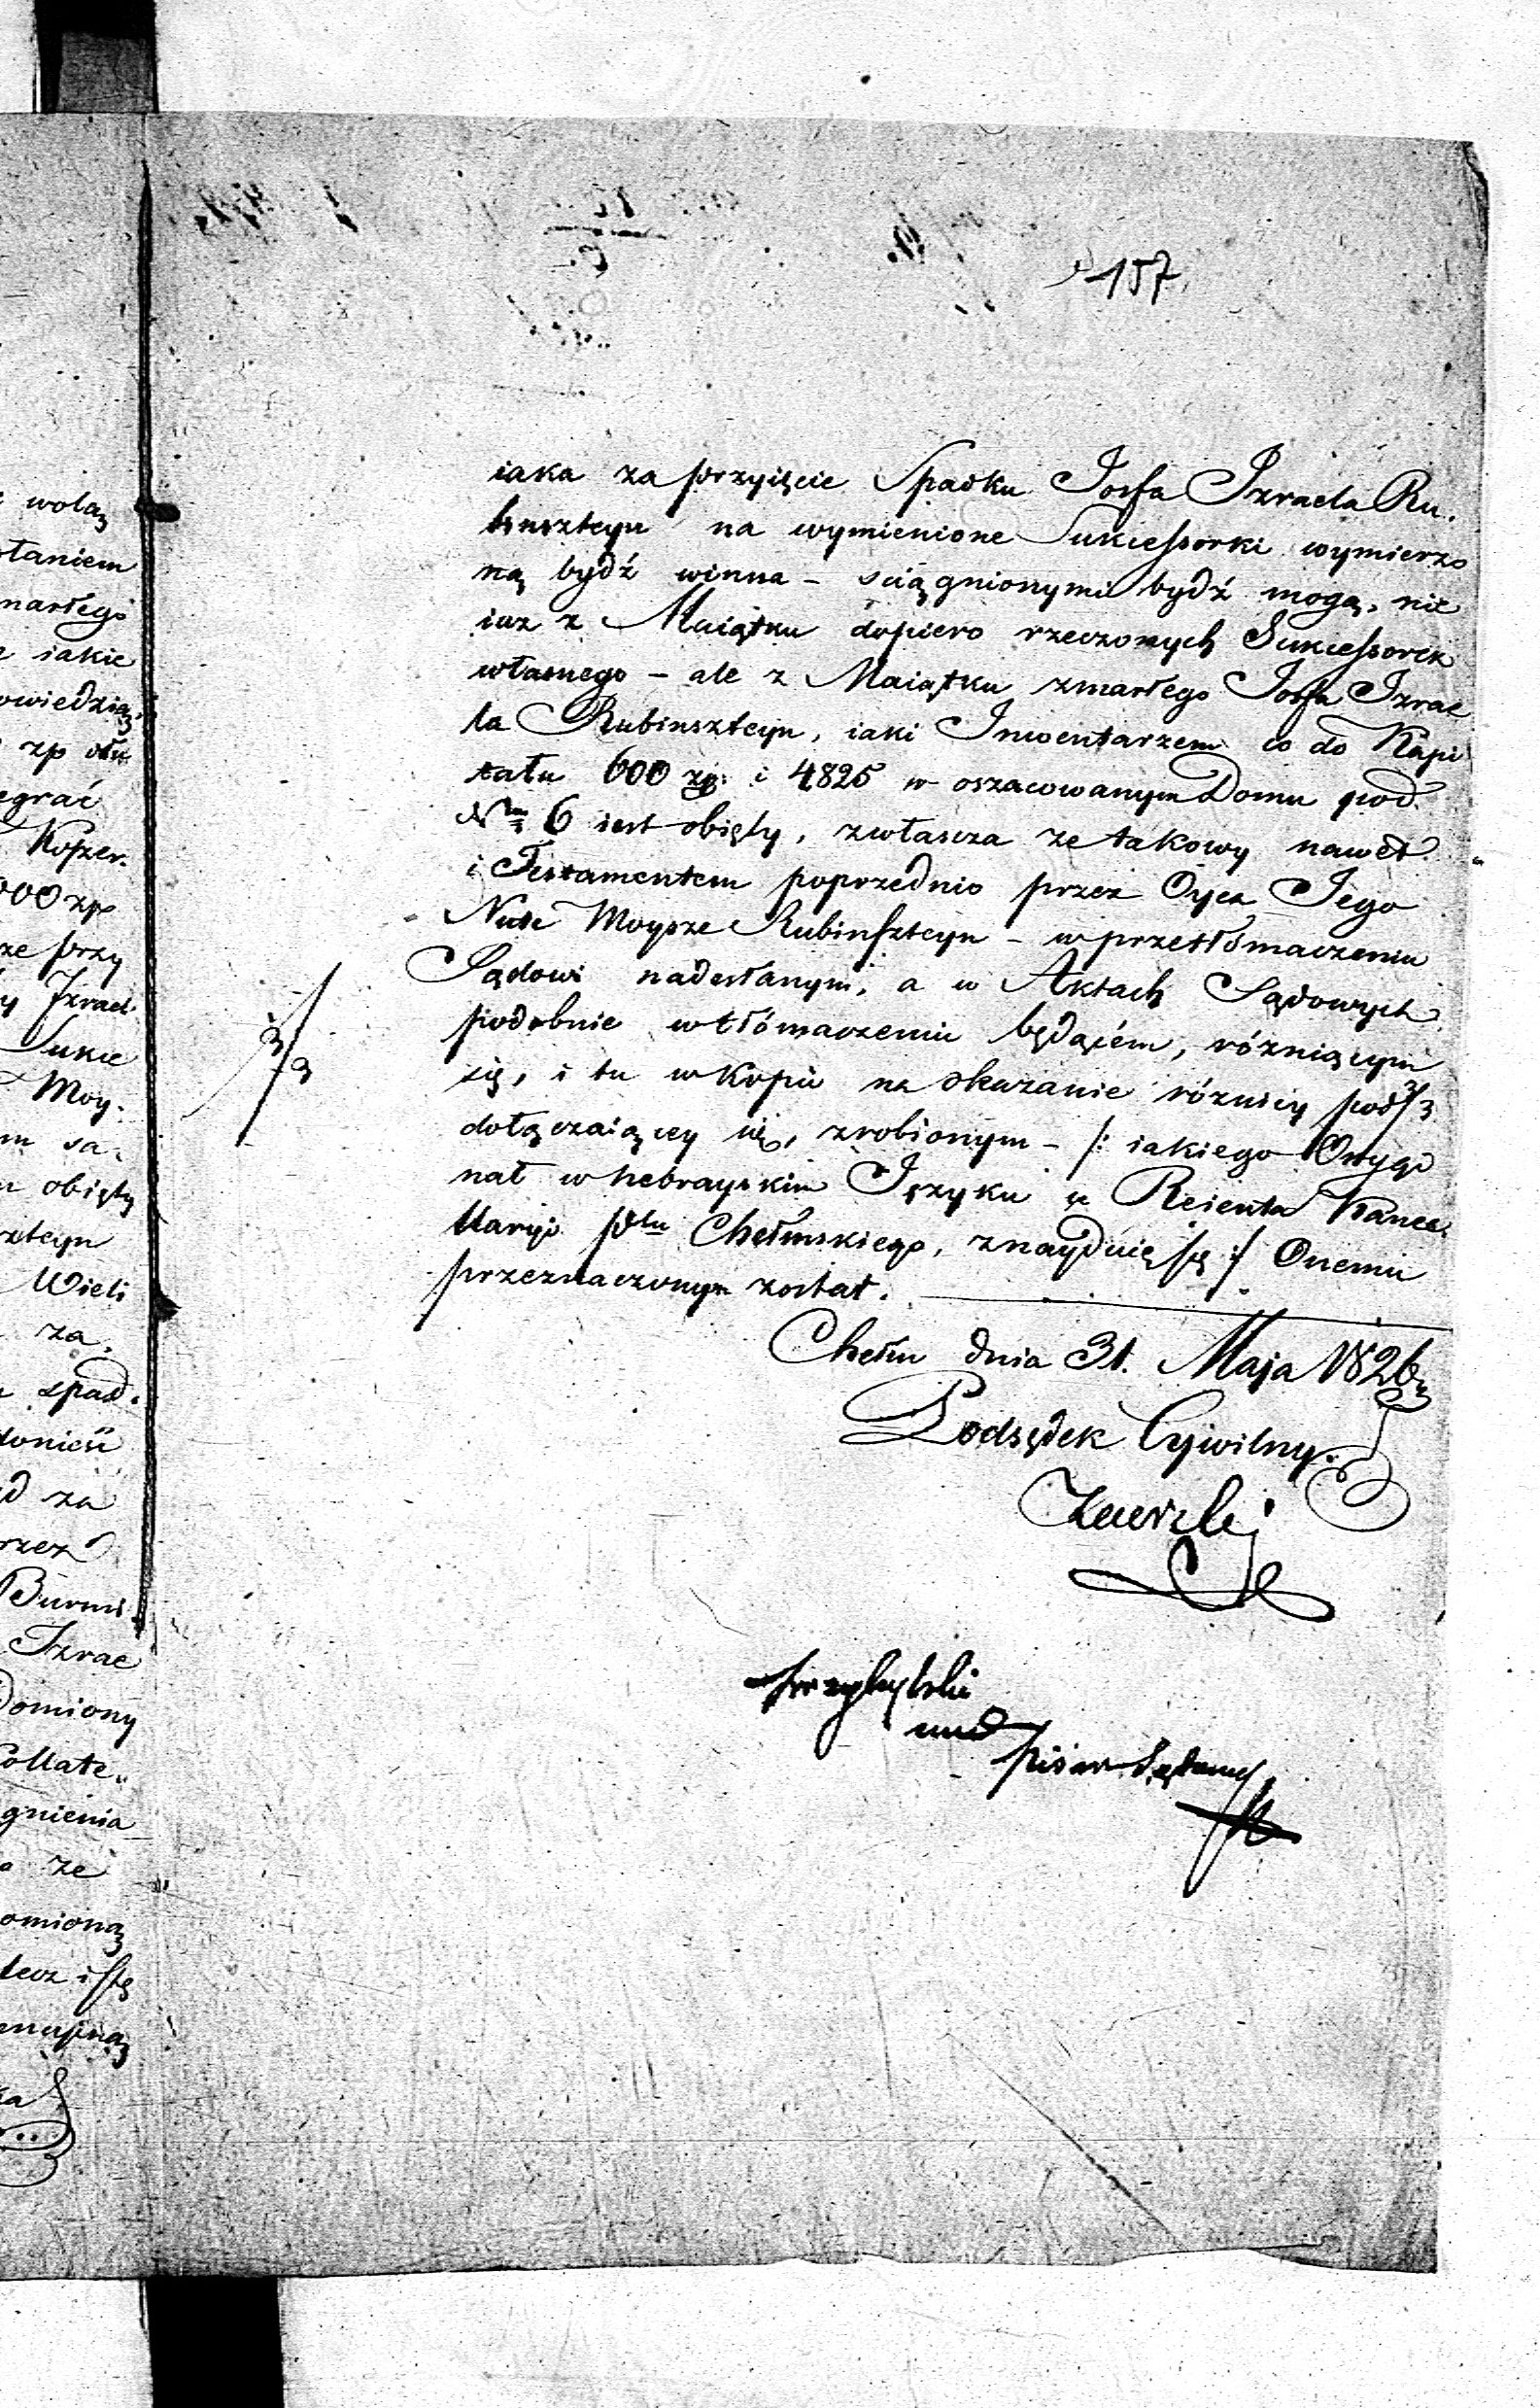 157
iaka za przyięcie Spadku Josfa Izraela Ru.
binszteyn na wymienione Sukcessorki wymierzo
ną bydź winna – sciągnionymi bydź mogą, nie
iuz z Maiątku dopiero rzeczonych Sukcessorek
własnego – ale z Maiątku zmarłego Josfa Izrae
la Rubinszteyn, iaki Inwentarzem co do Kapi
tału 600 zp. i 4825 w oszacowanym Domu pod
Nrm 6 iest obięty, zwłascza ze takowy nawet
i Testamentem poprzednio przez Oyca Jego
Nute Moysze Rubinszteyn – w przetłomaczeniu
Sądowi nadesłanym, a w Aktach Sądowych
podobnie w tłómaczeniu będącém, rózniącym
się, i tu w Kopii na okazanie róznicy pod 3/3
dołączaiącey się, zrobionym – /: iakiego Orygi
nał w hebrayskim Języku u Reienta Kance
llaryi Pttu Chełmskiego, znayduie się :/ Onemu
przeznaczonym został.
3/3
Chełm dnia 31. Maja 1826
Podsędek Cywilny.
Przybylski
Pisarz Sądowy
wolą
maręgo
iakie
zp
Kopzer.
przy
Izrael
Sukce
Moy.
sa.
obięty
Wieli
za
spad.
za
Burmi
Izrae
Collate
gnienia
ze